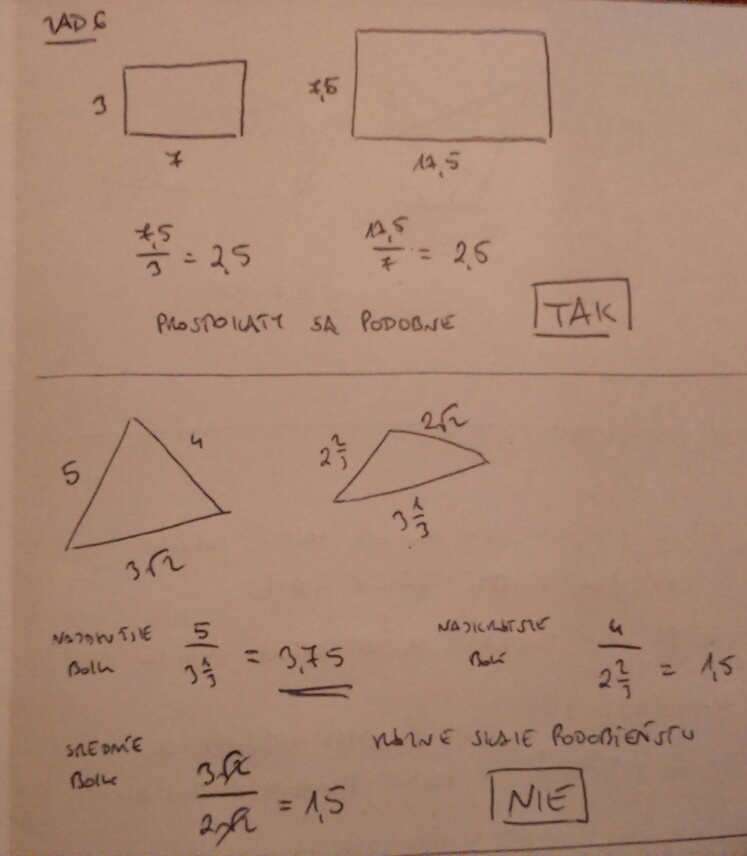 ZAD 6
3
7
7,5
17,5
7,5/3 = 2,5
17,5/7 = 2,5
PROSTOKĄTY SĄ PODOBNE
TAK
5
4
3√2
2 2/3
2√2
3 1/3
NAJDŁUŻSZE
BOKI
5/(3 1/3) = 3,75
NAJKRÓTSZE
BOKI
4/(2 2/3) = 1,5
ŚREDNIE
BOKI
3√2/2√2 = 1,5
RÓŻNE SKALE PODOBIEŃSTW
NIE